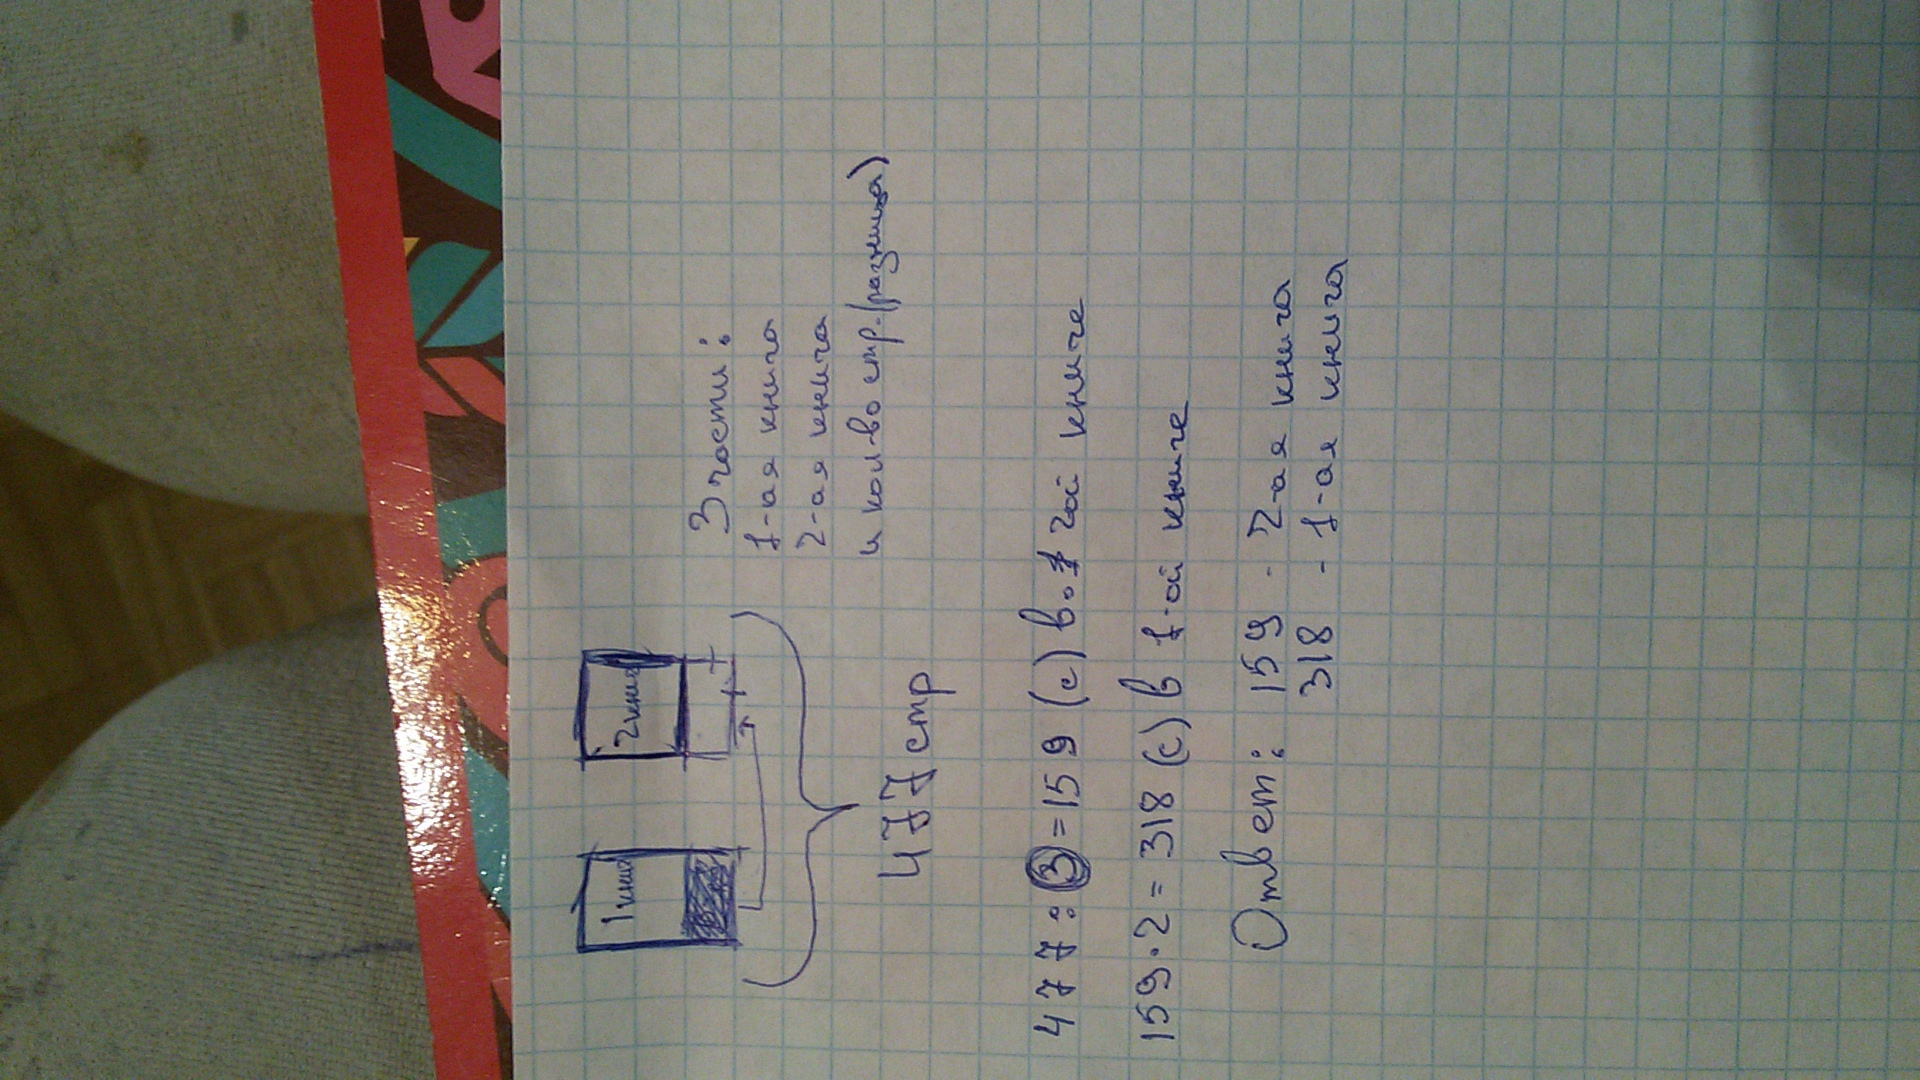 1 кни 2 кни
3 части:
1-ая книга
2-ая книга
и кол-во стр.(разница)
477 стр
477:3=159 (с) в. 2ой книге
159·2=318 (с) в 1-ой книге
Ответ: 159 - 2-ая книга
318 - 1-ая книга